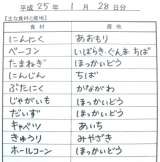 平成 25 年 1 月 28 日分
【主な食材と産地】
食材 産地
にんにく あおもり
ベーコン いばらき ぐんま ちば
たまねぎ ほっかいどう
にんじん ちば
ぶたにく かながわ
じゃがいも ほっかいどう
だいず ほっかいどう
キャベツ あいち
きゅうり みやざき
ホールコーン ほっかいどう